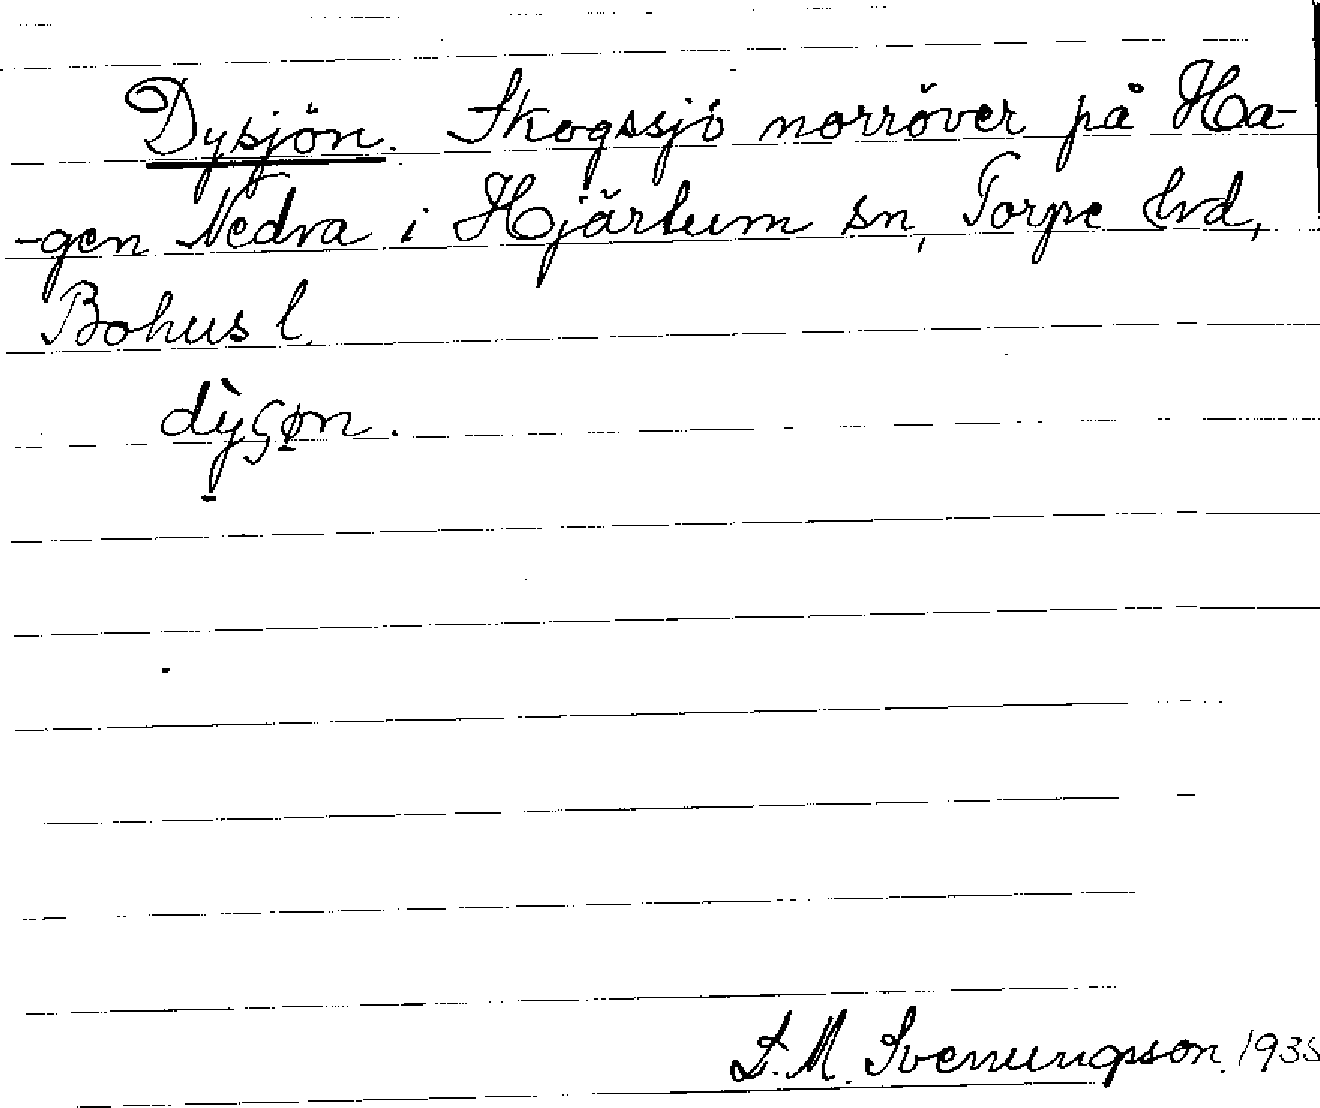 Dysjön. Skogssjö norröver på Ha-
-gen Nedra i Hjärtum sn, Torpe hd,
Bohus l.
dỳçøn.
S. M. Svenungsson. 1935